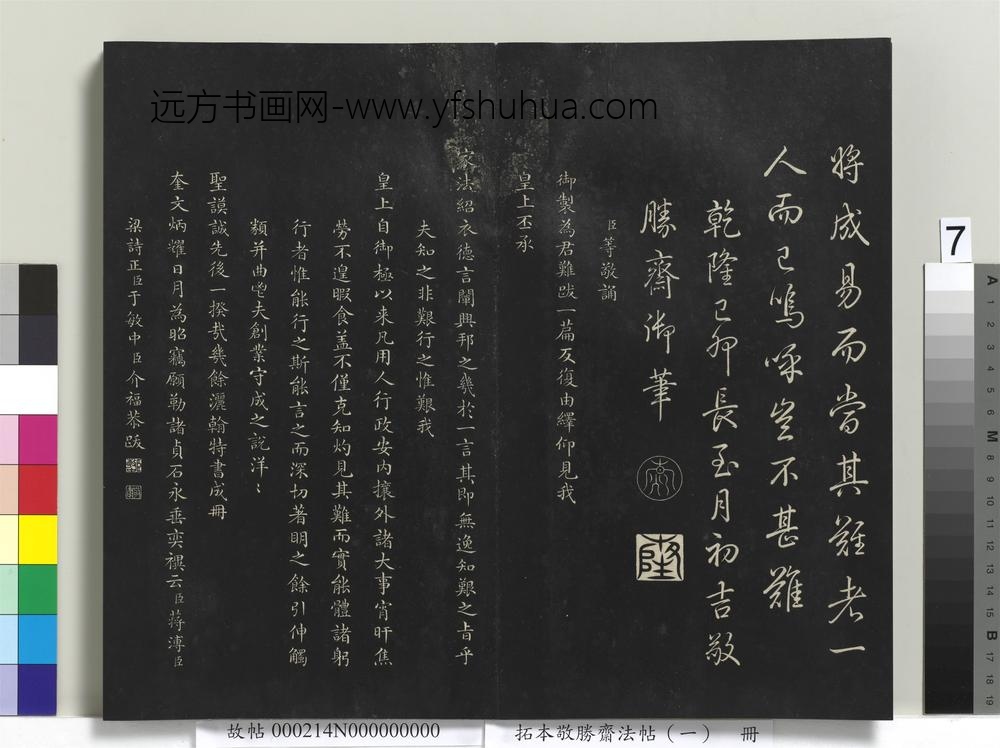 远方书画网-www.yfshuhua.com
將成易而當其難者一
人而已嗚呼豈不甚難
乾隆己卯長至月初吉敬
勝齋御筆
乾
隆
臣等敬誦
御製為君難跋一篇反復由繹仰見我
皇上丕承
家法紹衣德言闡興邦之幾於一言其即無逸知艱之旨乎
夫知之非艱行之惟艱我
皇上自御極以来凡用人行政安内攘外諸大事宵旰焦
勞不遑暇食盖不僅克知灼見其難而實能體諸躬
行者惟能行之斯能言之而深切著明之餘引伸觸
類并曲鬯夫創業守成之說洋〻
聖謨誠先後一揆㢤幾餘灑翰特書成冊
奎文炳燿日月為昭竊願勒諸貞石永垂奕禩云臣蔣溥臣
梁詩正臣于敏中臣介福恭跋
7
A 1 2 3 4 5 6 M 8 9 10 11 12 13 14 15 B 17 18 19
故帖 000214N000000000
拓本敬勝齋法帖（一） 冊